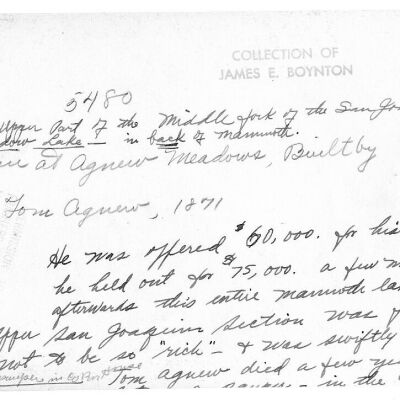 COLLECTION OF
JAMES E. BOYNTON
5480
Upper Part of the Middle fork of the San Jo
dow Lake - in back of Mammoth.
at Agnew Meadows, Built by
Tom Agnew, 1871
He was offered $60,000. for his
he held out for $75,000. a few m
afterwards this entire mammoth la
Upper San Joaquin section was f
not to be so "rich" - & was swiftly
Tom Agnew died a few ye
- in the